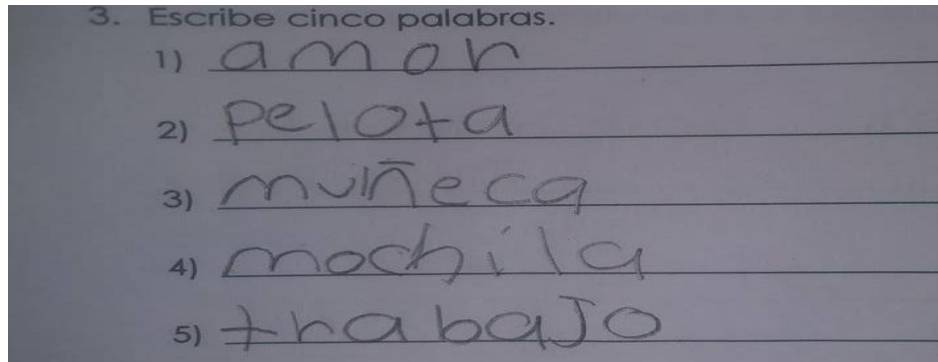 3. Escribe cinco palabras.
1) amor
2) pelota
3) muñeca
4) mochila
5) trabajo